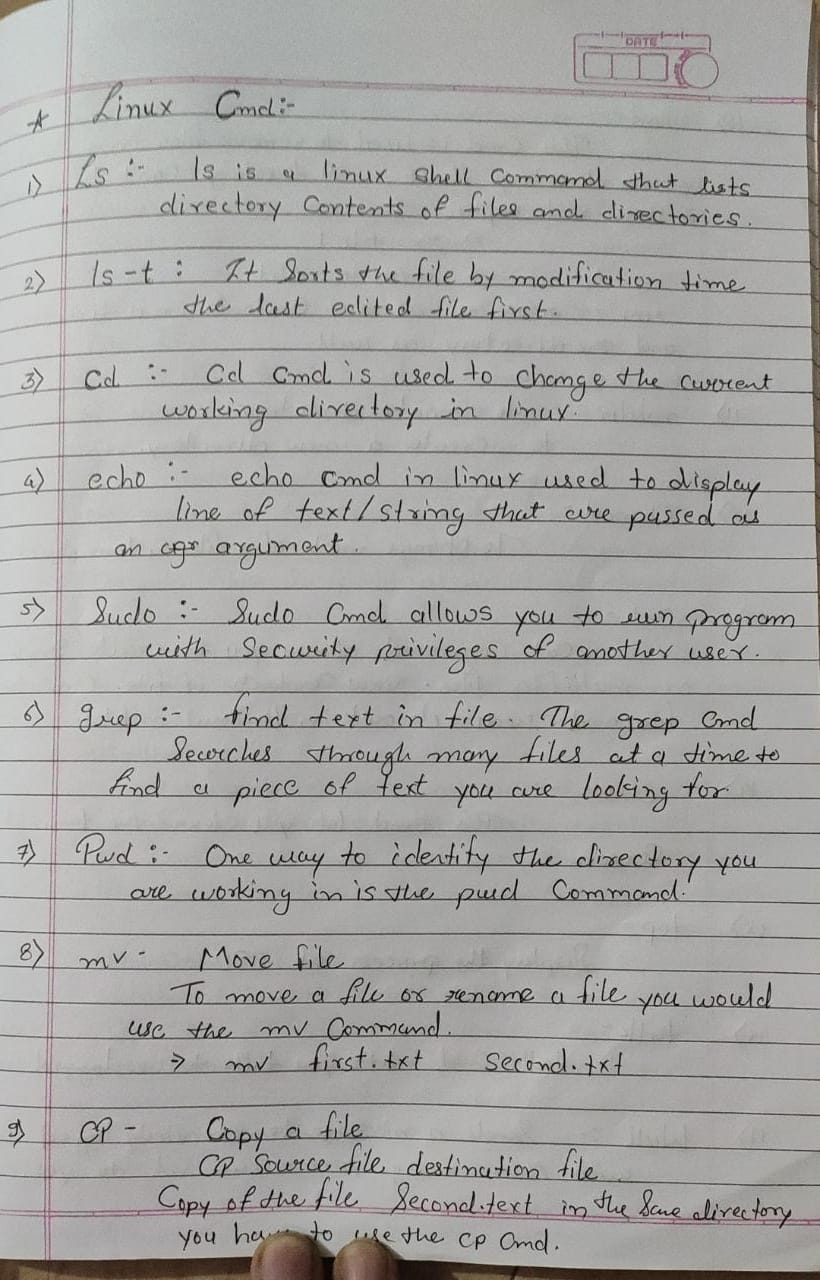 DATE
* Linux Cmd:-
1) Ls :- ls is a linux shell Command that lists
directory Contents of files and directories.
2) ls -t : It Sorts the file by modification time
the last edited file first.
3) Cd :- Cd Cmd is used to change the current
working directory in linux.
4) echo :- echo cmd in linux used to display
line of text/string that are passed as
an agr argument.
5) Sudo :- Sudo Cmd allows you to run program
with Security privileges of another user.
6) grep :- find text in file. The grep Cmd
Searches through many files at a time to
find a piece of text you are looking for.
7) Pwd :- One way to identify the directory you
are working in is the pwd Command.
8) mv - Move file
To move a file or rename a file you would
use the mv Command.
⇒ mv first.txt second.txt
9) CP - Copy a file
CP Source file destination file
Copy of the file Second.text in the Same directory
you have to use the cp Cmd.